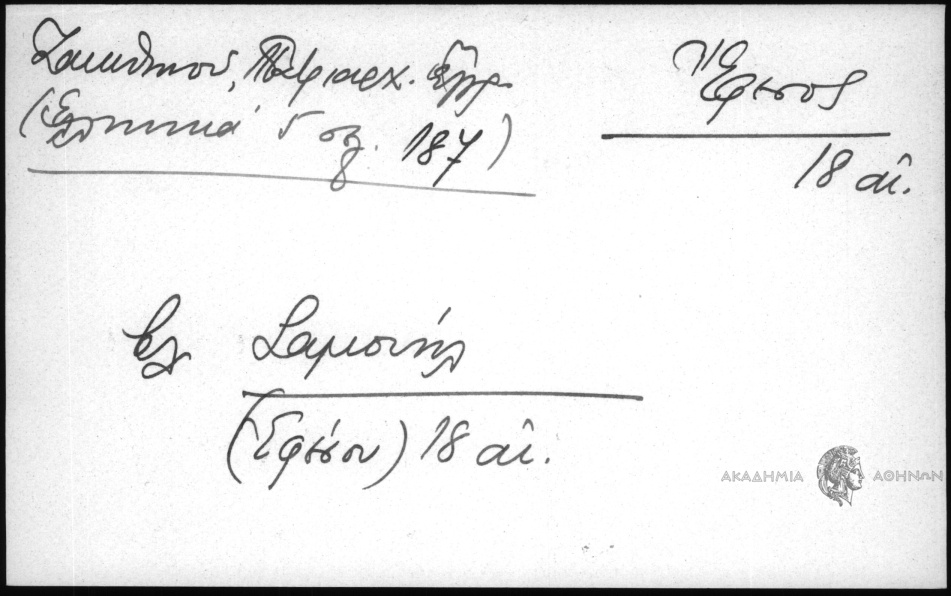 Ζακυθηνοῦ, Πατριαρχ. ἔγγρ.
(Ἑλληνικά 5 σελ. 187)
Ἔφεσος
18 αἰ.
βλ. Σαμουήλ
(Ἐφέσου) 18 αἰ.
ΑΚΑΔΗΜΙΑ ΑΘΗΝΩΝ